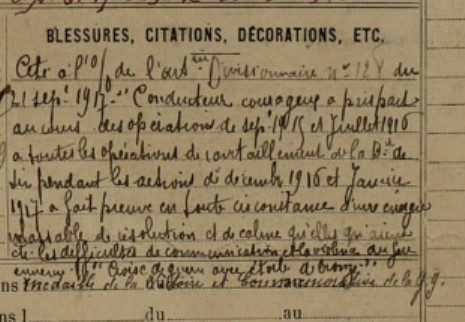 BLESSURES, CITATIONS, DÉCORATIONS, ETC.
Cité à l'O/ de l'art ie Divisionnaire n° 128 du
21 sept. 1917 " Conducteur courageux a pris part
au cours des opération de sept. 1915 et Juillet 1916
a toutes les opérations de ravitaillement de la Bie de
tir pendant les actions de décembre 1916 et Janvier
1917 a fait preuve en toute circonstance d'une énergie
remarquable de résolution et de calme quelles qu'aient
été les difficultés de communication et la violence du feu
ennemi " " Croix de guerre avec étoile de bronze "
ns Médaille de la Victoire et Commémorative de la g. g.
ns l du au